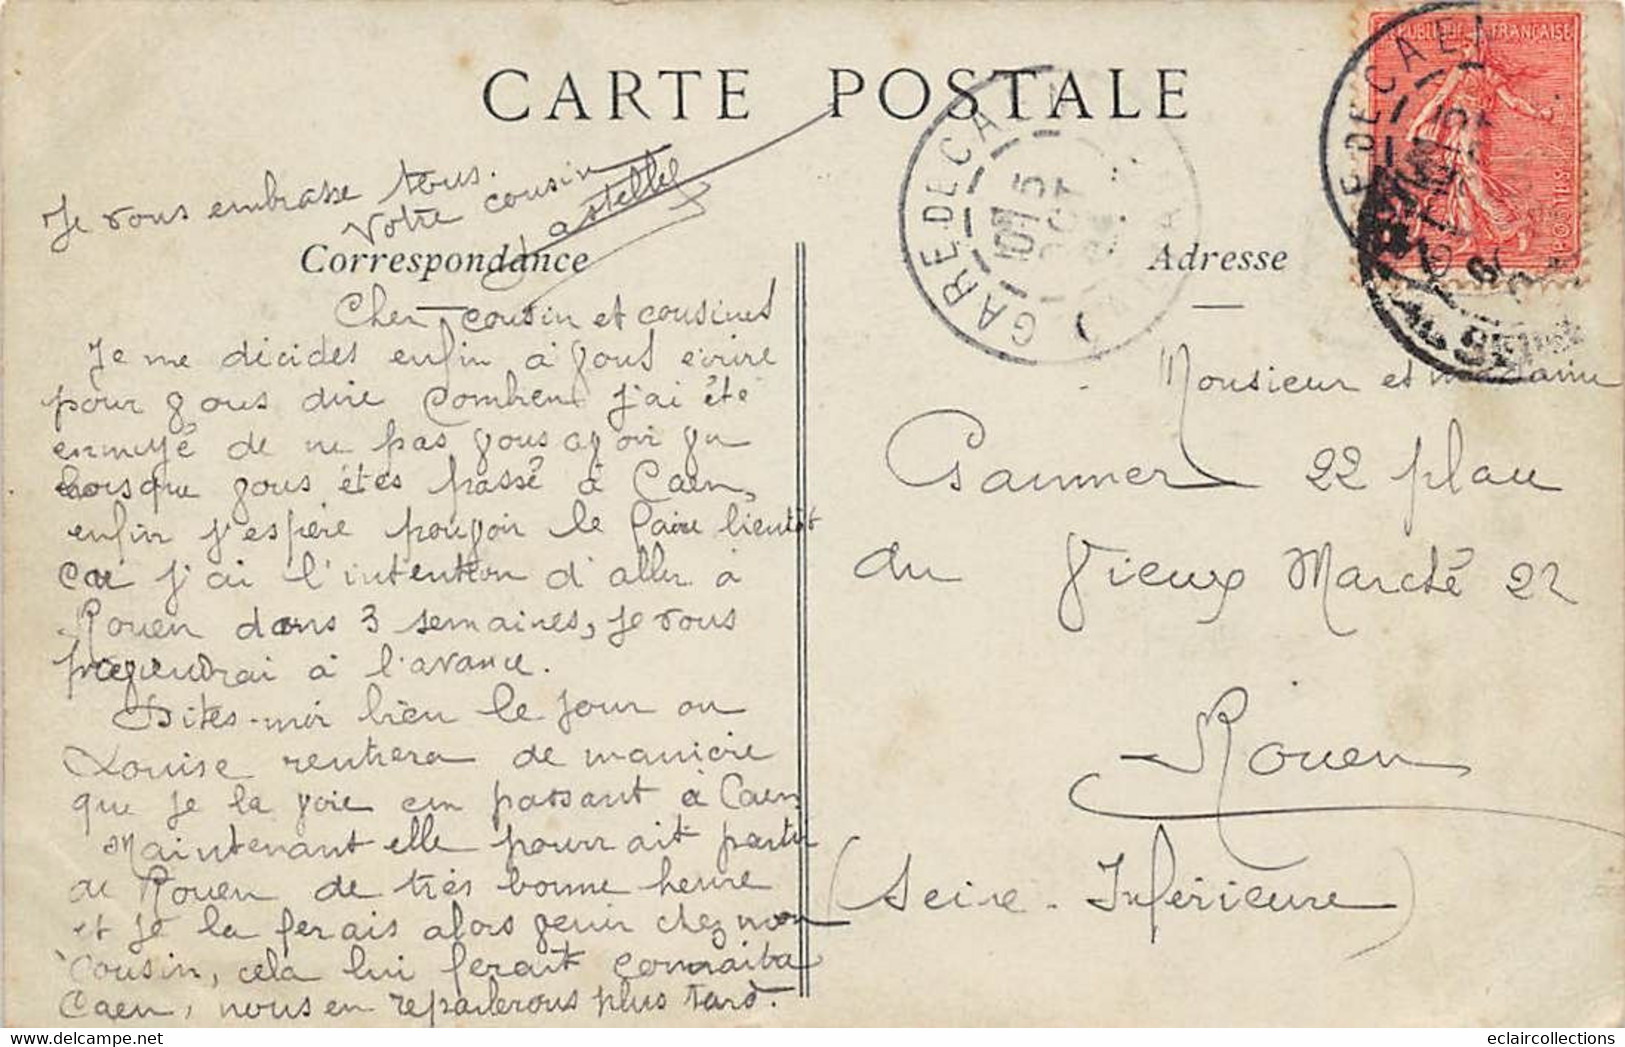 CARTE POSTALE
Je vous embrasse tous.
Votre cousin
Correspondance
Adresse
Cher cousin et cousines
Je me décides enfin à vous écrire
pour vous dire combien j'ai été
ennuyé de ne pas vous avoir vu
lorsque vous êtes passé à Caen,
enfin j'espère pouvoir le faire bientôt
car j'ai l'intention d'aller à
Rouen dans 3 semaines, je vous
préviendrai à l'avance.
Dites-moi bien le jour ou
Louise rentrera de manière
que je la voie en passant à Caen
Maintenant elle pourrait partir
de Rouen de très bonne heure
et je la ferais alors venir chez mon
cousin, cela lui ferait
Caen, nous en reparlerons plus tard.
Monsieur et madame
22 place
du Vieux Marché 22
Rouen
(Seine-Inférieure)
GARE DE CAEN
REPUBLIQUE FRANÇAISE
POSTES
GARE DE CAEN
eclaircollections